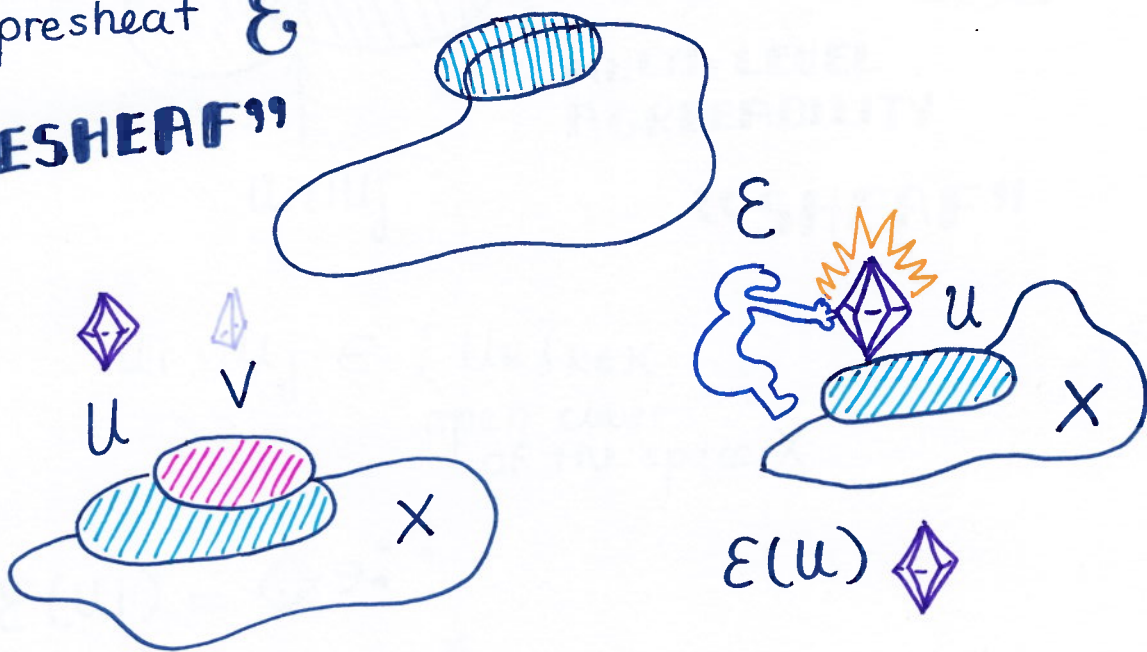 presheaf ℰ
ESHEAF”
ℰ
U
U
V
X
X
ℰ(U)